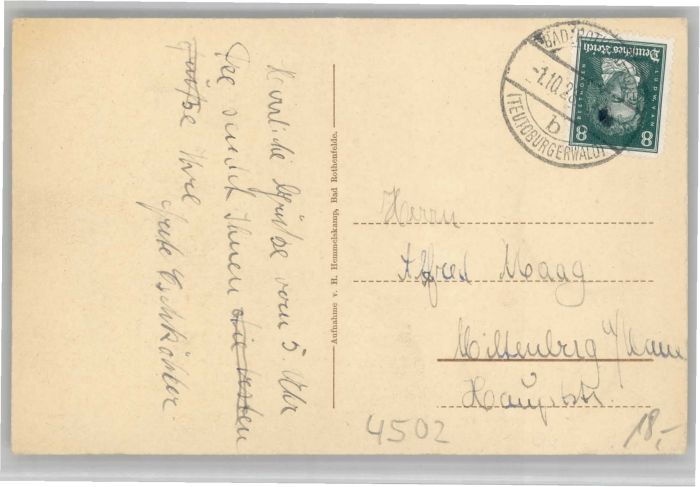 Herzliche Grüße vom 5 Uhr
Tee sendet Ihnen die besten
Grüße Ihre
Aufnahme v. H. Hemmelskamp, Bad Rothenfelde.
BAD ROTHENFELDE
-1.10.28
b
(TEUTOBURGERWALD)
Deutsches Reich
LUDW. VAN
BEETHOVEN
8 8
Herrn
Alfred Maag
Miltenberg a/Main
Hauptstr.
4502
18,-